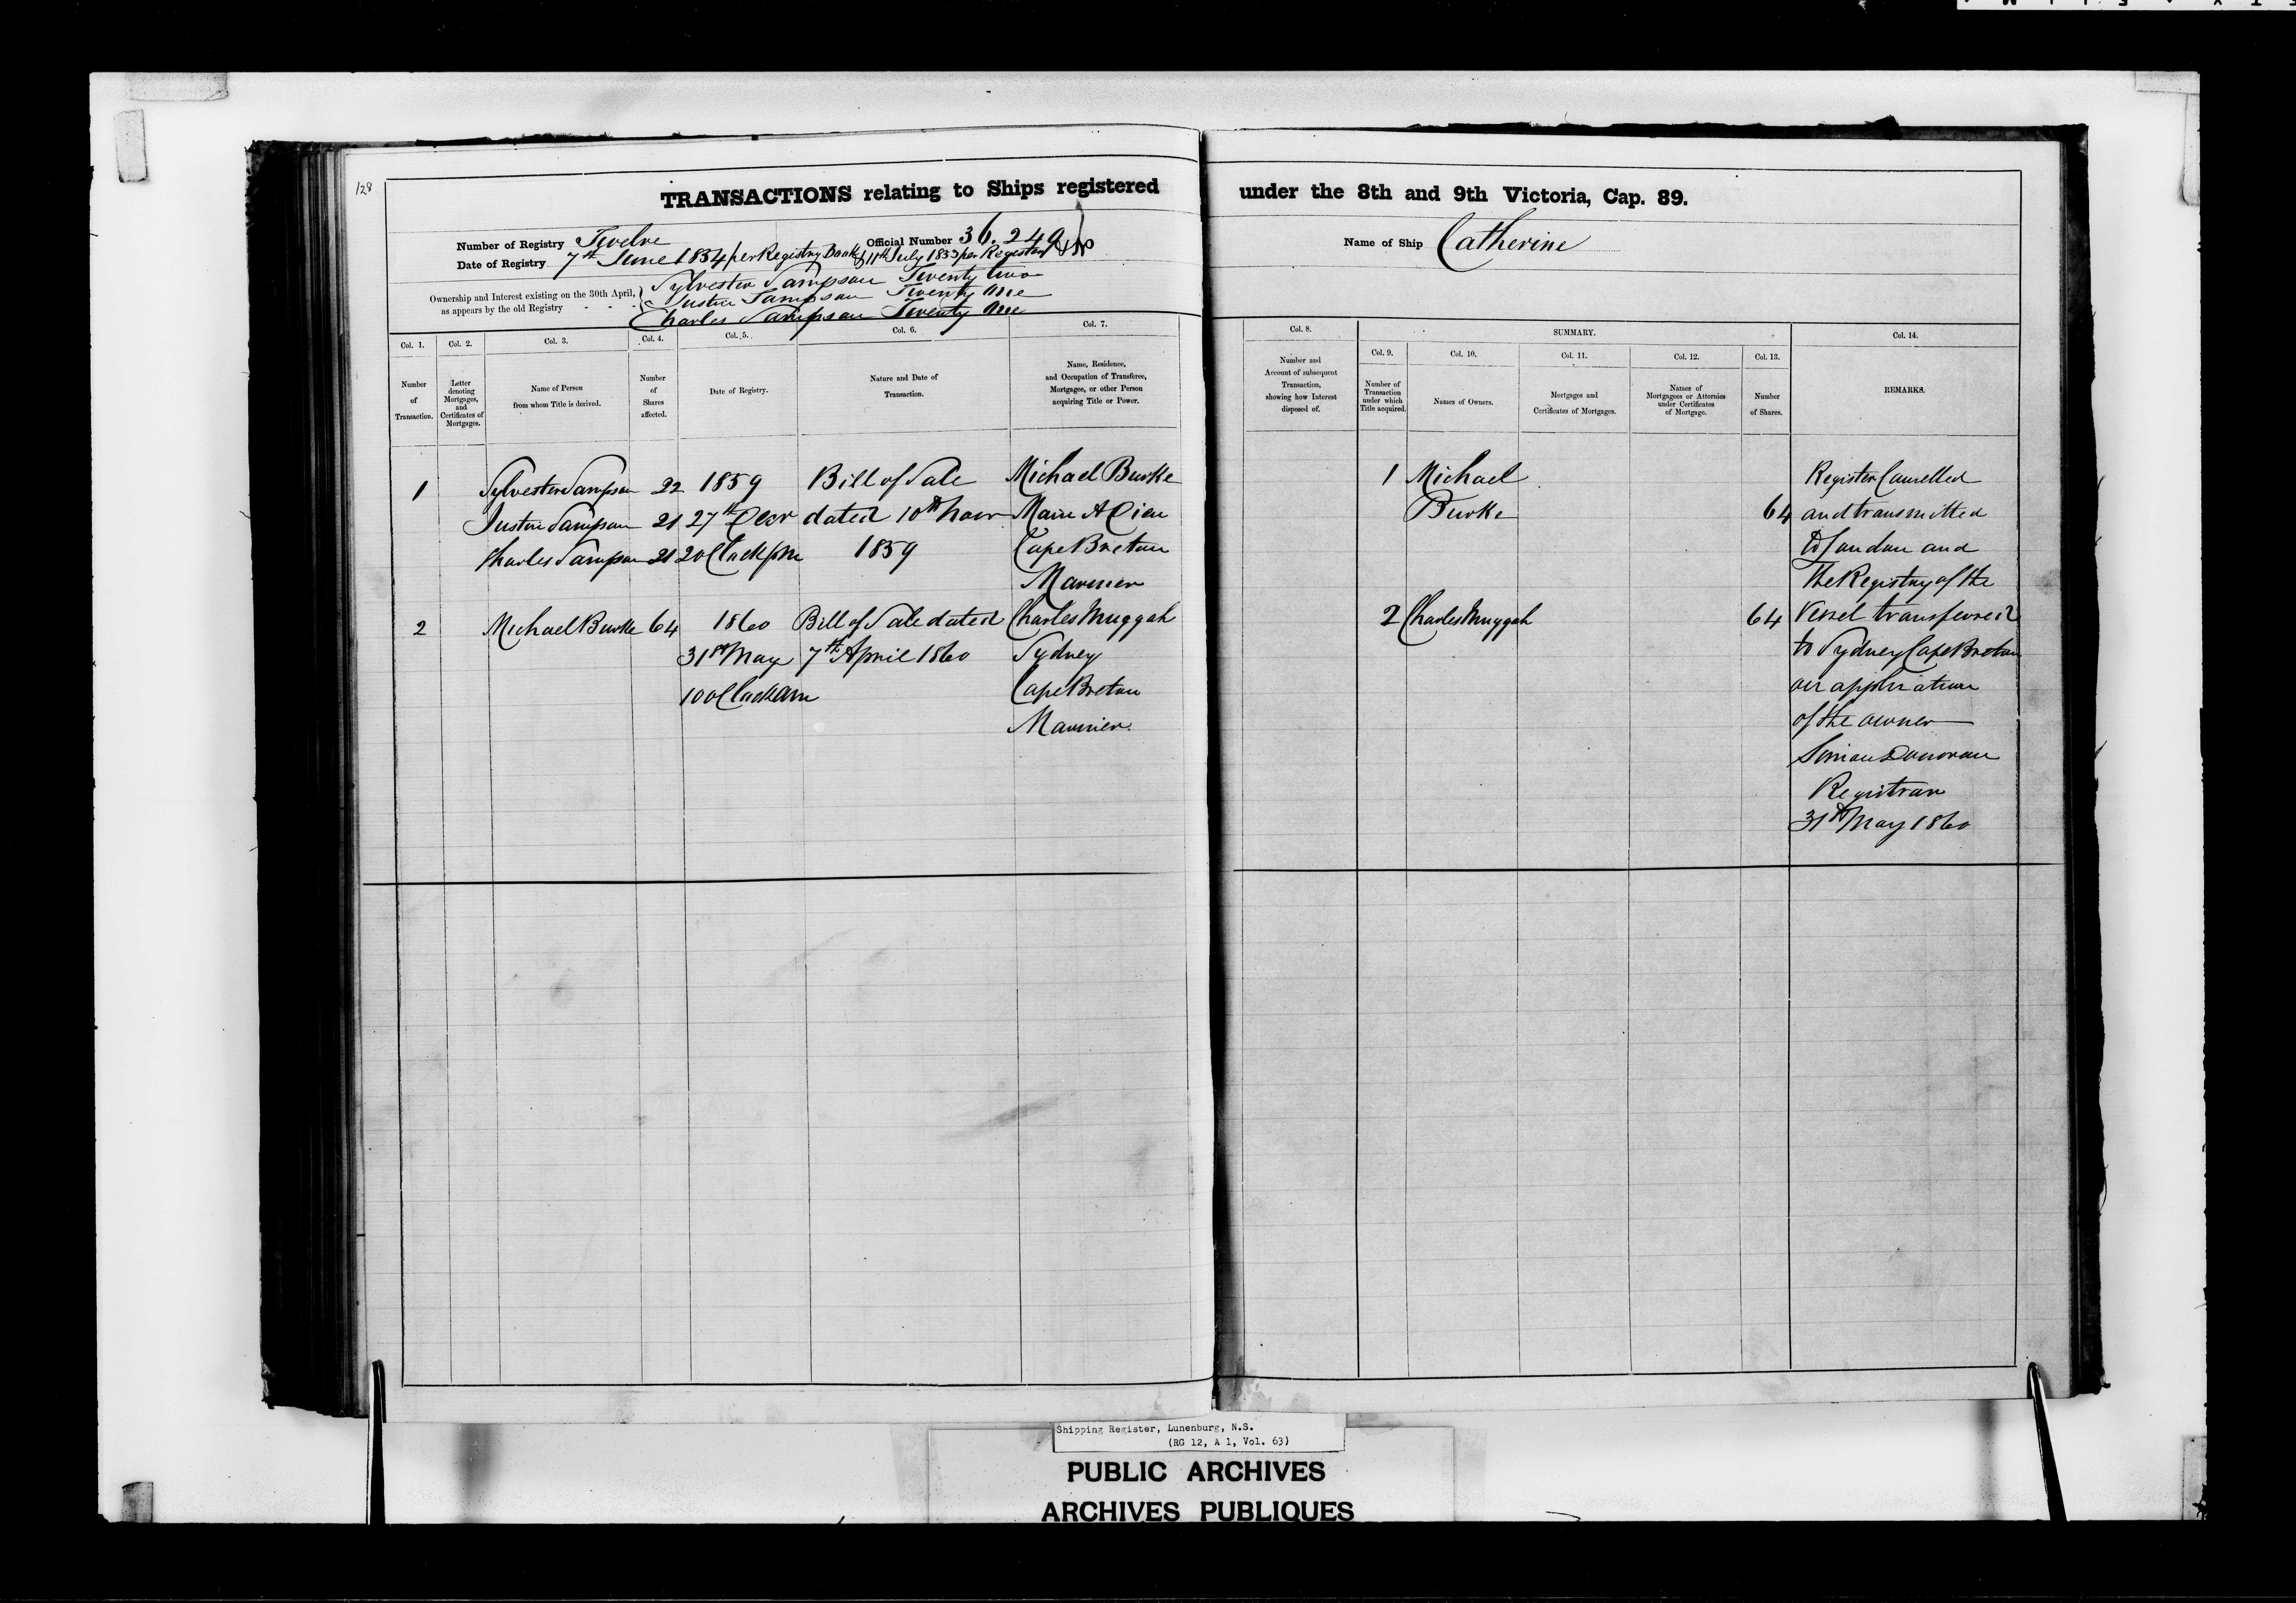 128
TRANSACTIONS relating to Ships registered under the 8th and 9th Victoria, Cap. 89.
Number of Registry Twelve Official Number 36.249 Name of Ship Catherine
Date of Registry 7th June 1834 per Registry Book & 11th July 1853 per Register
Ownership and Interest existing on the 30th April, as appears by the old Registry
Sylvester Sampson Twenty two
Justin Sampson Twenty One
Charles Sampson Twenty One
Col. 1.
Number
of
Transaction.
Col. 2.
Letter
denoting
Mortgages,
and
Certificates of
Mortgages.
Col. 3.
Name of Person
from whom Title is derived.
Col. 4.
Number
of
Shares
affected.
Col. 5.
Date of Registry.
Col. 6.
Nature and Date of
Transaction.
Col. 7.
Name, Residence,
and Occupation of Transferee,
Mortgagee, or other Person
acquiring Title or Power.
Col. 8.
Number and
Account of subsequent
Transaction,
showing how Interest
disposed of.
SUMMARY.
Col. 9.
Number of
Transaction
under which
Title acquired.
Col. 10.
Names of Owners.
Col. 11.
Mortgages and
Certificates of Mortgages.
Col. 12.
Names of
Mortgagees or Attornies
under Certificates
of Mortgage.
Col. 13.
Number
of Shares.
Col. 14.
REMARKS.
1 Sylvester Sampson 22 1859 Bill of Sale Michael Burke
Justin Sampson 21 27th Decr dated 10th Main A Dieu
Charles Sampson 21 2 oClock pm 1859 Cape Breton
Mariner
2 Michael Burke 64 1860 Bill of Sale dated Charles Muggah
31st May 7th April 1860 Sydney
10 oClock am Cape Breton
Mariner
1 Michael
Burke 64
2 Charles Muggah 64
Register Cancelled
and transmitted
to London and
the Registry of the
Vessel transferred
to Sydney Cape Breton
on application
of the owner
Simon Donovan
Registrar
31st May 1860
Shipping Register, Lunenburg, N.S.
(RG 12, A 1, Vol. 63)
PUBLIC ARCHIVES
ARCHIVES PUBLIQUES